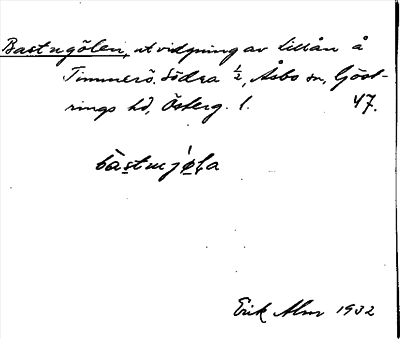 Bastugölen, utvidgning av Lillån å
Timmerö. Södra ½, Åsbo sn, Göst-
rings hd, Österg. l. 47.
bàstujø̀l̥a
Erik Alm 1932